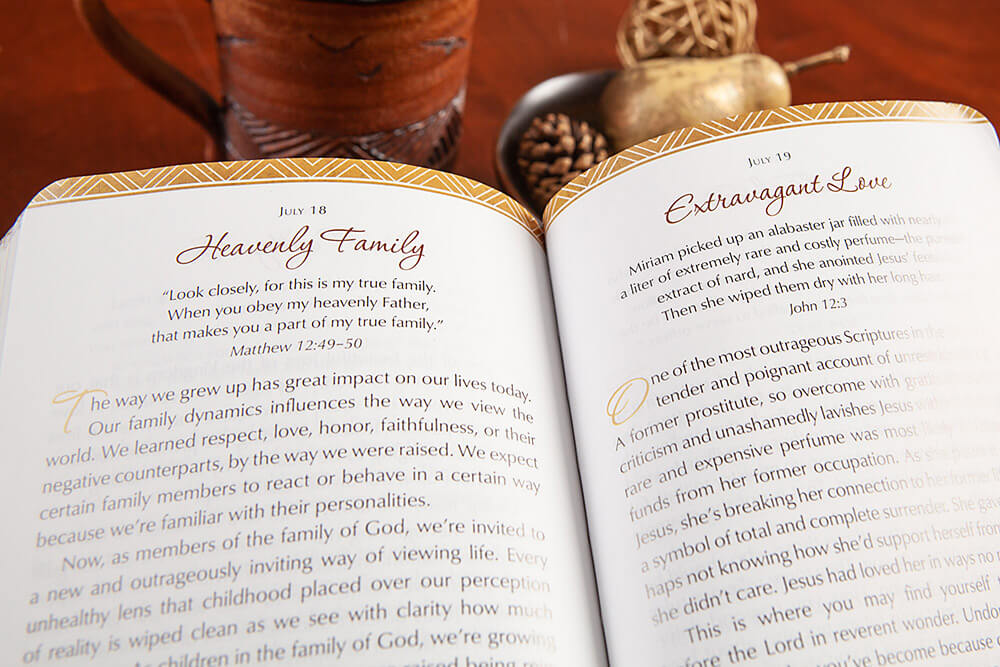 July 18
Heavenly Family
“Look closely, for this is my true family.
When you obey my heavenly Father,
that makes you a part of my true family.”
Matthew 12:49–50
The way we grew up has great impact on our lives today.
Our family dynamics influences the way we view the
world. We learned respect, love, honor, faithfulness, or their
negative counterparts, by the way we were raised. We expect
certain family members to react or behave in a certain way
because we’re familiar with their personalities.
Now, as members of the family of God, we’re invited to
a new and outrageously inviting way of viewing life. Every
unhealthy lens that childhood placed over our perception
of reality is wiped clean as we see with clarity how much
As children in the family of God, we’re growing
raised being
July 19
Extravagant Love
Miriam picked up an alabaster jar filled with nearly
a liter of extremely rare and costly perfume—the
extract of nard, and she anointed Jesus’ feet
Then she wiped them dry with her long hair.
John 12:3
One of the most outrageous Scriptures in the
tender and poignant account of
A former prostitute, so overcome with
criticism and unashamedly lavishes Jesus
rare and expensive perfume was most likely
funds from her former occupation. As she
Jesus, she’s breaking her connection to her former
a symbol of total and complete surrender. She gave
haps not knowing how she’d support herself from
she didn’t care. Jesus had loved her in ways no
This is where you may find yourself
fore the Lord in reverent wonder.
you’ve become because